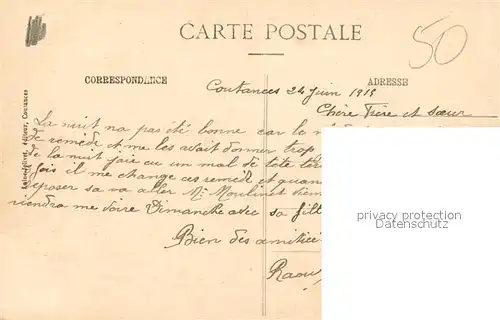 50
CARTE POSTALE
CORRESPONDANCE
ADRESSE
Coutances 24 juin 1915
Chère Frère et sœur
La nuit na pas été bonne car le
de remède et me les avait donner trop
de la nuit jaie eu un mal de tête
fois il me change ces remède et quan
reposer sa va aller Mr Moulinet vien
viendra me voire Dimanche avec sa fill
Bien des amitiée
Raou
éditeur, Coutances
privacy protection
Datenschutz